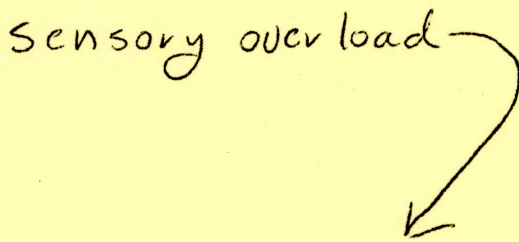 sensory overload